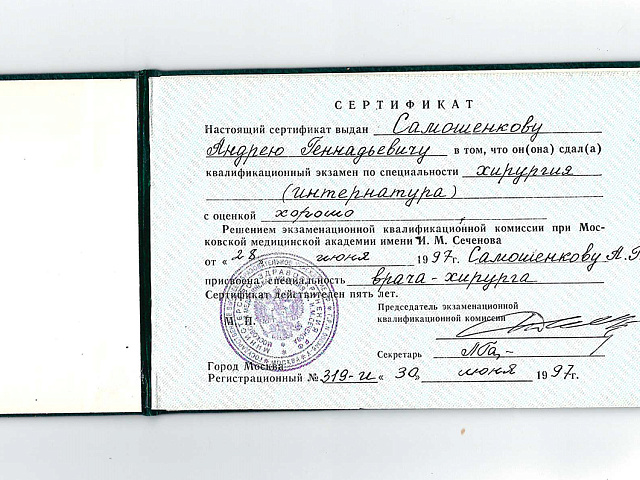 СЕРТИФИКАТ
Настоящий сертификат выдан Самошенкову
Андрею Геннадьевичу в том, что он(она) сдал(а)
квалификационный экзамен по специальности хирургия
(интернатура)
с оценкой хорошо
Решением экзаменационной квалификационной комиссии при Мос-
ковской медицинской академии имени И. М. Сеченова
от «28 июня 1997г. Самошенкову А.Г
присвоена специальность врача-хирурга
Сертификат действителен пять лет.
Председатель экзаменационной
М. П. квалификационной комиссии
Секретарь
Город Москва
Регистрационный № 319-и «30» июня 1997г.